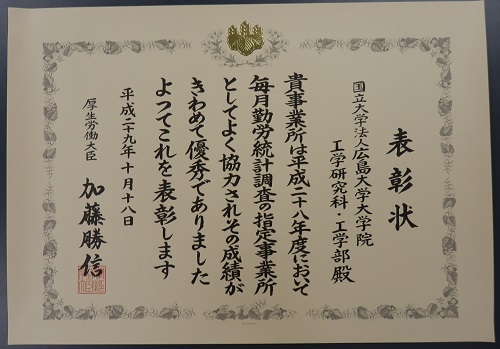 表彰状
国立大学法人広島大学大学院
工学研究科・工学部 殿
貴事業所は平成二十八年度において
毎月勤労統計調査の指定事業所
としてよく協力されその成績が
きわめて優秀でありました
よってこれを表彰します
平成二十九年十月十八日
厚生労働大臣 加藤勝信